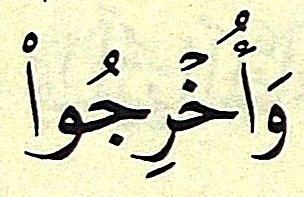 وَأُخْرِجُوا۟